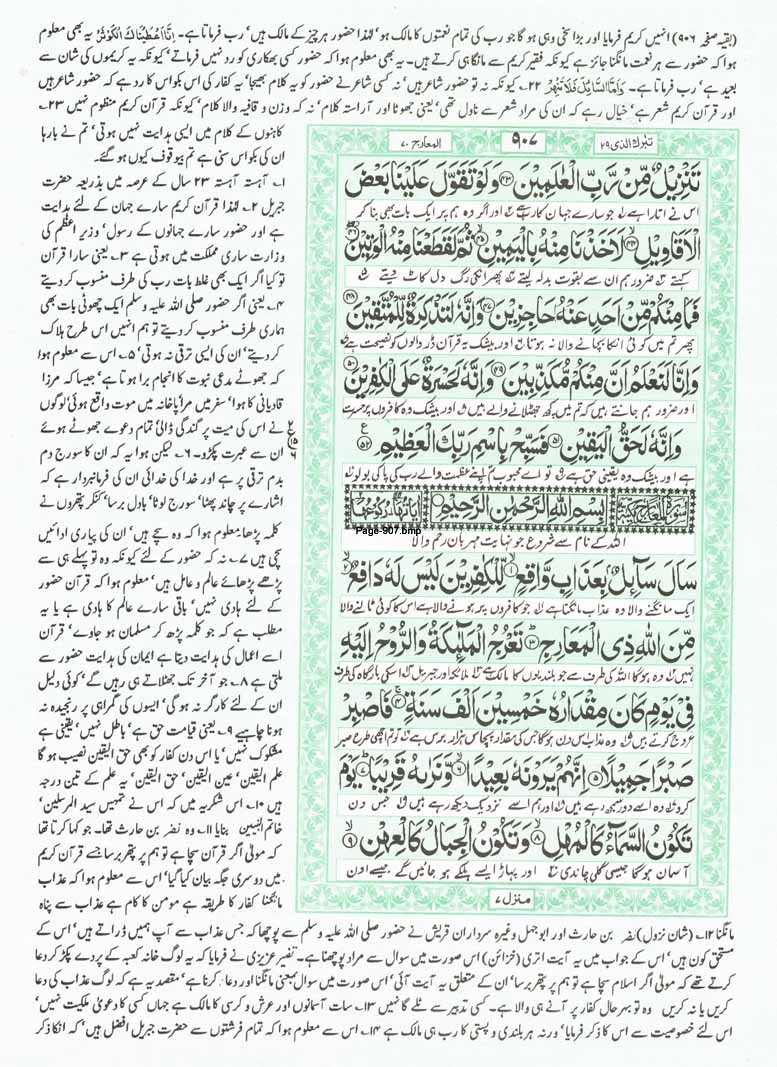 (بقیہ صفحہ ۹۰۶) انہیں کریم فرمایا اور بڑا سخی وہی ہو گا جو رب کی تمام نعمتوں کا مالک ہو' لہٰذا حضور ہر چیز کے مالک ہیں' رب فرماتا ہے۔ اِنَّآ اَعْطَیْنٰکَ الْکَوْثَرَ یہ بھی معلوم
ہوا کہ حضور سے ہر نعمت مانگنا جائز ہے کیونکہ فقیر کریم سے مانگا ہی کرتے ہیں۔ یہ بھی معلوم ہوا کہ حضور کسی بھکاری کو رد نہیں فرماتے' کیونکہ یہ کریموں کی شان سے
بعید ہے' رب فرماتا ہے۔ وَاَمَّا السَّآئِلَ فَلَا تَنْهَرْ ۲۲۔ کیونکہ نہ تو حضور شاعر ہیں' نہ کسی شاعر نے حضور کو یہ کلام بھیجا' یہ کفار کی اس بکواس کا رد ہے کہ حضور شاعر ہیں
اور قرآن کریم شعر ہے' خیال رہے کہ ان کی مراد شعر سے ناول تھی' یعنی جھوٹا اور آراستہ کلام' نہ کہ وزن و قافیہ والا کلام' کیونکہ قرآن کریم منظوم نہیں ۲۳۔
تبٰرک الذی ۲۹
۹۰۷
المعارج ۷۰
تَنْزِيْلٌ مِّنْ رَّبِّ الْعٰلَمِيْنَ ﴿۴۳﴾ وَلَوْ تَقَوَّلَ عَلَيْنَا بَعْضَ
اس نے اتارا ہے جو سارے جہان کا رب ہے اور اگر وہ ہم پر ایک بات بھی بنا کر
الْاَقَاوِيْلِ ﴿۴۴﴾ لَاَخَذْنَا مِنْهُ بِالْيَمِيْنِ ﴿۴۵﴾ ثُمَّ لَقَطَعْنَا مِنْهُ الْوَتِيْنَ ﴿۴۶﴾
کہتے ضرور ہم ان سے بقوت بدلہ لیتے پھر انکی رگ دل کاٹ دیتے
فَمَا مِنْكُمْ مِّنْ اَحَدٍ عَنْهُ حَاجِزِيْنَ ﴿۴۷﴾ وَاِنَّهٗ لَتَذْكِرَةٌ لِّلْمُتَّقِيْنَ ﴿۴۸﴾
پھر تم میں کوئی انکا بچانے والا نہ ہوتا اور بیشک یہ قرآن ڈر والوں کو نصیحت ہے
وَاِنَّا لَنَعْلَمُ اَنَّ مِنْكُمْ مُّكَذِّبِيْنَ ﴿۴۹﴾ وَاِنَّهٗ لَحَسْرَةٌ عَلَى الْكٰفِرِيْنَ ﴿۵۰﴾
اور ضرور ہم جانتے ہیں کہ تم میں کچھ جھٹلانے والے ہیں اور بیشک وہ کافروں پر حسرت
وَاِنَّهٗ لَحَقُّ الْيَقِيْنِ ﴿۵۱﴾ فَسَبِّحْ بِاسْمِ رَبِّكَ الْعَظِيْمِ ﴿۵۲﴾
ہے اور بیشک وہ یقینی حق ہے تو اے محبوب تم اپنے عظمت والے رب کی پاکی بولو
بِسْمِ اللّٰهِ الرَّحْمٰنِ الرَّحِيْمِ
Page-907.bmp
اللہ کے نام سے شروع جو نہایت مہربان رحم والا
سَاَلَ سَآئِلٌۢ بِعَذَابٍ وَّاقِعٍ ﴿۱﴾ لِّلْكٰفِرِيْنَ لَيْسَ لَهٗ دَافِعٌ ﴿۲﴾
ایک مانگنے والا وہ عذاب مانگتا ہے جو کافروں پر ہونے والا ہے اس کا کوئی ٹالنے والا
مِّنَ اللّٰهِ ذِى الْمَعَارِجِ ﴿۳﴾ تَعْرُجُ الْمَلٰٓئِكَةُ وَالرُّوْحُ اِلَيْهِ
نہیں وہ ہوگا اللہ کی طرف سے جو بلندیوں کا مالک ہے ملائکہ اور جبریل اسکی بارگاہ کی طرف
فِىْ يَوْمٍ كَانَ مِقْدَارُهٗ خَمْسِيْنَ اَلْفَ سَنَةٍ ﴿۴﴾ فَاصْبِرْ
عروج کرتے ہیں وہ عذاب اس دن ہوگا جس کی مقدار پچاس ہزار برس ہے تو تم اچھی طرح صبر
صَبْرًا جَمِيْلًا ﴿۵﴾ اِنَّهُمْ يَرَوْنَهٗ بَعِيْدًا ﴿۶﴾ وَّنَرٰىهُ قَرِيْبًا ﴿۷﴾ يَوْمَ
کرو وہ اسے دور سمجھ رہے ہیں اور ہم اسے نزدیک دیکھ رہے ہیں جس دن
تَكُوْنُ السَّمَآءُ كَالْمُهْلِ ﴿۸﴾ وَتَكُوْنُ الْجِبَالُ كَالْعِهْنِ ﴿۹﴾
آسمان ہوگا جیسی گلی چاندی اور پہاڑ ایسے ہلکے ہو جائیں گے جیسے اون
منزل ۷
کاہنوں کے کلام میں ایسی ہدایت نہیں ہوتی' تم نے بارہا
ان کی بکواس سنی ہے تم بیوقوف کیوں ہو گئے۔
۱۔ آہستہ آہستہ ۲۳ سال کے عرصہ میں بذریعہ حضرت
جبریل ۲۔ لہٰذا قرآن کریم سارے جہان کے لئے ہدایت
ہے اور حضور سارے جہانوں کے رسول' وزیر اعظم کی
وزارت ساری مملکت میں ہوتی ہے ۳۔ یعنی سارا قرآن
تو کیا اگر ایک بھی غلط بات رب کی طرف منسوب کر دیتے
۴۔ یعنی اگر حضور صلی اللہ علیہ وسلم ایک چھوٹی بات بھی
ہماری طرف منسوب کر دیتے تو ہم انہیں اس طرح ہلاک
کر دیتے' ان کی ایسی ترقی نہ ہوتی' ۵۔ اس سے معلوم ہوا
کہ جھوٹے مدعی نبوت کا انجام برا ہوتا ہے' جیسا کہ مرزا
قادیانی کا ہوا' سفر میں مرا پاخانہ میں موت واقع ہوئی' لوگوں
نے اس کی میت پر گندگی ڈالی' تمام دعوے جھوٹے ہوئے
ان سے عبرت پکڑو۔ ۶۔ لیکن ہوا یہ کہ ان کا سورج دم
بدم ترقی پر ہے اور خدا کی خدائی ان کی فرمانبردار ہے کہ
اشارے پر چاند پھٹا' سورج لوٹا' بادل برسا' کنکر پتھروں نے
کلمہ پڑھا' معلوم ہوا کہ وہ سچے ہیں' ان کی پیاری ادائیں
سچی ہیں ۷۔ نہ کہ حضور کے لئے کیونکہ وہ تو پہلے ہی سے
پڑھے پڑھائے عالم و عامل ہیں' معلوم ہوا کہ قرآن حضور
کے لئے ہادی نہیں' باقی سارے عالم کا ہادی ہے یا یہ
مطلب ہے کہ جو کلمہ پڑھ کر مسلمان ہو جاوے' قرآن
اسے اعمال کی ہدایت دیتا ہے ایمان کی ہدایت حضور سے
ملتی ہے ۸۔ جو آخر تک جھٹلاتے ہی رہیں گے' کوئی دلیل
ان کے لئے کارگر نہ ہو گی' ایسوں کی گمراہی پر رنجیدہ نہ
ہونا چاہیے ۹۔ یعنی قیامت حق ہے' باطل نہیں' یقینی ہے
مشکوک نہیں' یا اس دن کفار کو بھی حق الیقین نصیب ہو گا
علم الیقین' عین الیقین' حق الیقین' یہ علم کے تین درجہ
ہیں ۱۰۔ اس شکریہ میں کہ اس نے تمہیں سید المرسلین'
خاتم النبیین بنایا ۱۱۔ وہ نضر بن حارث تھا۔ جو کہا کرتا تھا
کہ مولٰی اگر قرآن سچا ہے تو ہم پر پتھر برسا جسے قرآن کریم
میں دوسری جگہ بیان کیا گیا' اس سے معلوم ہوا کہ عذاب
مانگنا کفار کا طریقہ ہے مومن کا کام ہے عذاب سے پناہ
مانگنا ۱۲۔ (شان نزول) نضر بن حارث اور ابوجہل وغیرہ سرداران قریش نے حضور صلی اللہ علیہ وسلم سے پوچھا کہ جس عذاب سے آپ ہمیں ڈراتے ہیں' اس کے
مستحق کون ہیں' اس کے جواب میں یہ آیت اتری (خزائن) اس صورت میں سوال سے مراد پوچھنا ہے۔ تفسیر عزیزی نے فرمایا کہ یہ لوگ خانہ کعبہ کے پردے پکڑ کر دعا
کرتے تھے کہ مولٰی اگر اسلام سچا ہے تو ہم پر پتھر برسا' ان کے متعلق یہ آیت آئی' اس صورت میں سوال بمعنی مانگنا اور دعا کرنا ہے' مقصد یہ ہے کہ لوگ عذاب کی دعا
کریں یا نہ کریں وہ تو بہرحال کفار پر آنے ہی والا ہے۔ کسی تدبیر سے ٹلے گا نہیں ۱۳۔ سات آسمانوں اور عرش و کرسی کا مالک ہے جہاں کسی کا دعویٰ ملکیت نہیں'
اس لئے خصوصیت سے اس کا ذکر فرمایا' ورنہ ہر بلندی و پستی کا رب ہی مالک ہے ۱۴۔ اس سے معلوم ہوا کہ تمام فرشتوں سے حضرت جبریل افضل ہیں' کہ انکا ذکر